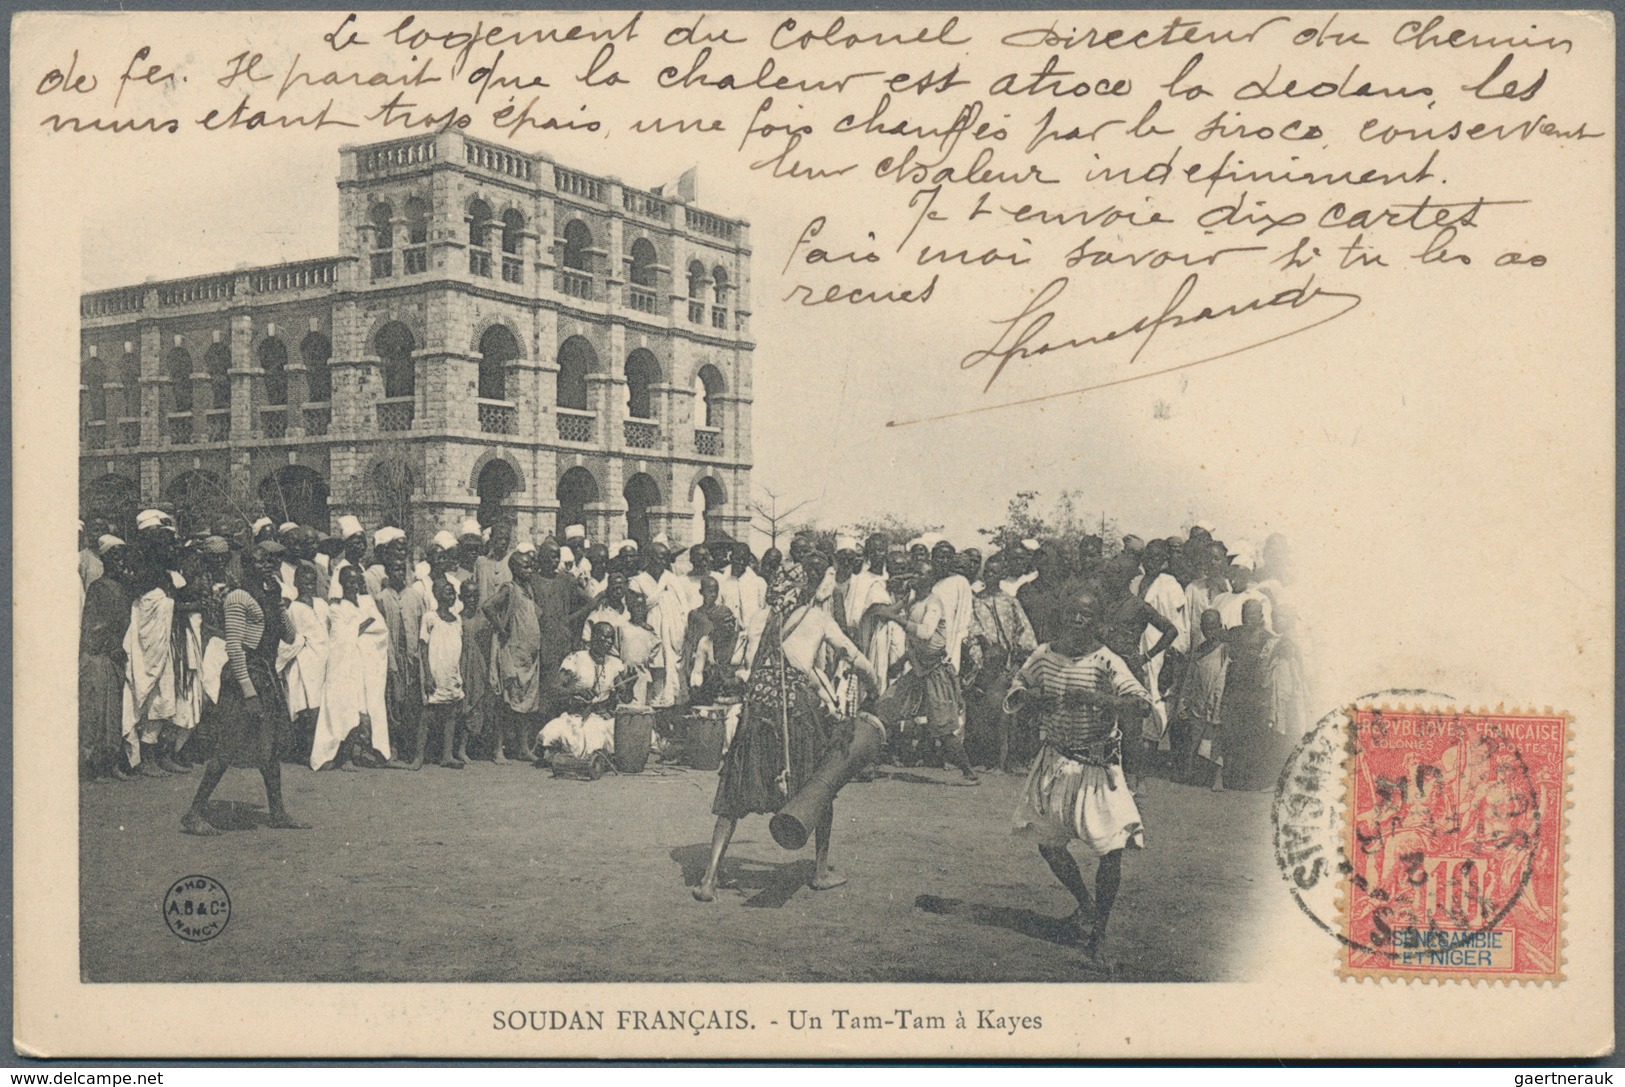 Le logement du Colonel Directeur du Chemin
de fer. Il parait que la chaleur est atroce la dedans, les
murs etant trop épais, une fois chauffés par le siroco, conservent
leur chaleur indefiniment.
Je t envoie dix cartes
fais moi savoir si tu les as
recues
PHOT
A.B & Cº
NANCY
RÉPUBLIQUE FRANÇAISE
COLONIES POSTES
10
SÉNÉGAMBIE
ET NIGER
SOUDAN FRANÇAIS. - Un Tam-Tam à Kayes
gaertnerauk @ delcampe.net